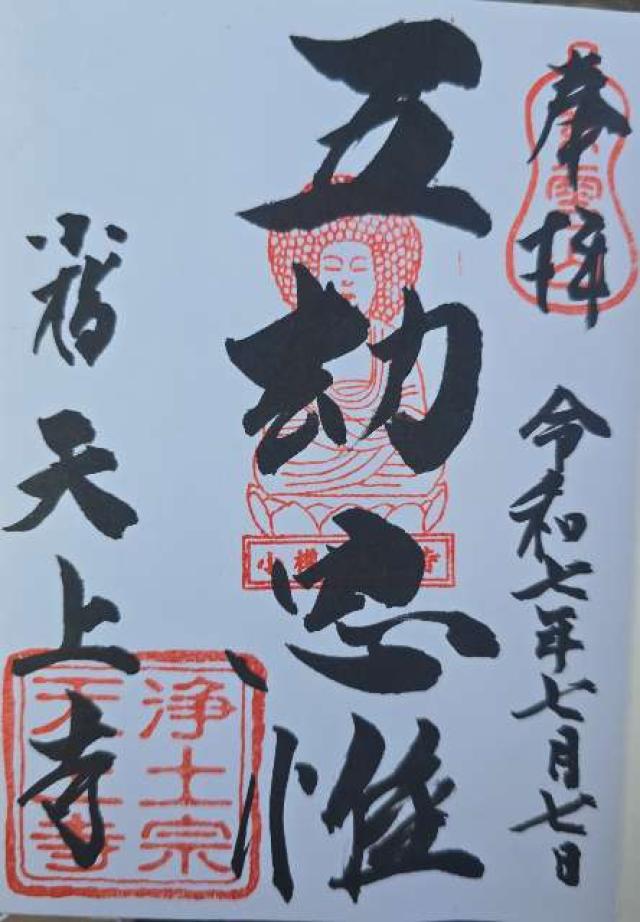 奉拝
令和七年七月七日
五劫思惟
小樽
天上寺
小樽 寺
浄土宗
天上寺